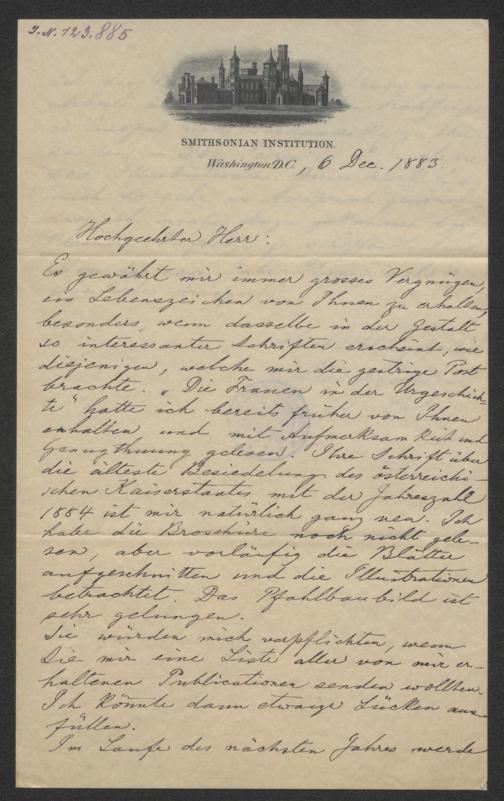 J. N. 123.885
SMITHSONIAN INSTITUTION.
Washington D.C., 6 Dec. 1883.
Hochgeehrter Herr:
Es gewährt mir immer grosses Vergnügen,
ein Lebenszeichen von Ihnen zu erhalten,
besonders, wenn dasselbe in der Gestalt
so interessanter Schriften erscheint, wie
diejenigen, welche mir die gestrige Post
brachte. „Die Frauen in der Urgeschich-
te" hatte ich bereits früher von Ihnen
erhalten und mit Aufmerksamkeit und
Genugthuung gelesen. Ihre Schrift über
die älteste Besiedelung des österreichi-
schen Kaiserstaates mit der Jahreszahl
1884 ist mir natürlich ganz neu. Ich
habe die Broschüre noch nicht gele-
sen, aber vorläufig die Blätter
aufgeschnitten und die Illustrationen
betrachtet. Das Pfahlbaubild ist
sehr gelungen.
Sie würden mich verpflichten, wenn
Sie mir eine Liste aller von mir er-
haltenen Publicationen senden wollten.
Ich könnte dann etwaige Lücken aus-
füllen.
Im Laufe des nächsten Jahres werde